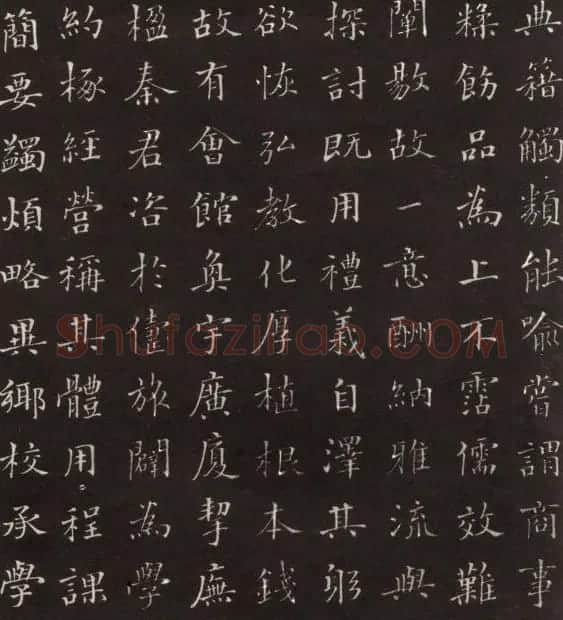 典籍觸類能喻嘗謂商事
糅飭品為上不霑儒效難
闡敭故一意酬納雅流與
探討既用禮義自澤其躬
欲恢弘教化厚植根本錢
故有會館奐宇廣廈挈廡
楹秦君咨於僑旅闢為學
約椓經營稱其體用程課
簡要蠲煩略異鄉校承學
Shufaziliao.com